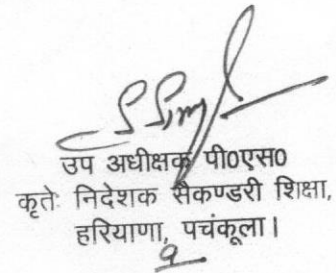 उप अधीक्षक पी0एस0
कृतेः निदेशक सैकण्डरी शिक्षा,
हरियाणा, पचंकूला।